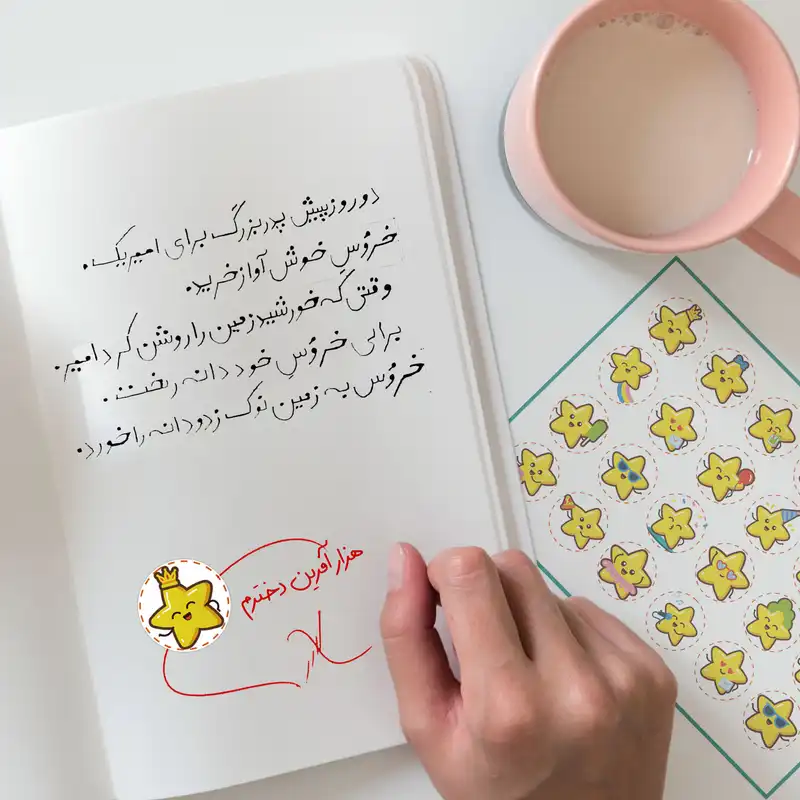 دو روز پیش پدربزرگ برای امیر یک.
خروُسِ خوش آواز خرید.
وقتی که خورشید زمین را روشن کرد امیر.
برای خروُسِ خود دانه ریخت.
خروُس به زمین نوک زد و دانه را خورد.
هزار آفرین دخترم